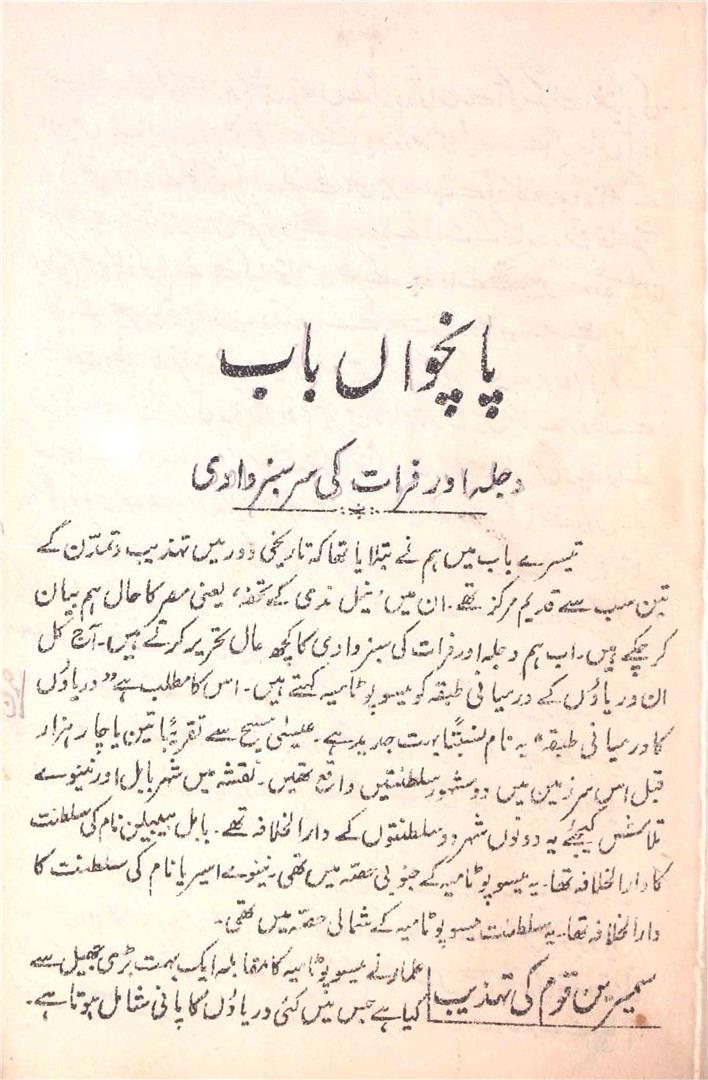 پانچواں باب
دجلہ اور فرات کی سرسبز وادی
تیسرے باب میں ہم نے بتلایا تھا کہ تاریخی دور میں تہذیب و تمدّن کے
تین سب سے قدیم مرکز تھے۔ ان میں ’نیل ندی کے تحفہ‘ یعنی مصر کا حال ہم بیان
کر چکے ہیں۔ اب ہم دجلہ اور فرات کی سبز وادی کا کچھ حال تحریر کرتے ہیں۔ آج کل
ان دریاؤں کے درمیانی طبقہ کو میسوپوٹامیہ کہتے ہیں۔ اس کا مطلب ہے ”دریاؤں
کا درمیانی طبقہ“ یہ نام نسبتًا بہت جدید ہے۔ عیسیٰ مسیح سے تقریبًا تین یا چار ہزار
قبل اس سرزمین میں دو مشہور سلطنتیں واقع تھیں۔ نقشہ میں شہر بابل اور نینوے
تلاش کیجئے یہ دونوں شہر دو سلطنتوں کے دارالخلافہ تھے۔ بابل بیبیلن نام کی سلطنت
کا دارالخلافہ تھا۔ یہ میسوپوٹامیہ کے جنوبی حصّہ میں تھی۔ نینوے اسیریا نام کی سلطنت کا
دارالخلافہ تھا۔ یہ سلطنت میسوپوٹامیہ کے شمالی حصّہ میں تھی۔
سمیرین قوم کی تہذیب علماء نے میسوپوٹامیہ کا مقابلہ ایک بہت بڑی جھیل سے
کیا ہے جس میں کئی دریاؤں کا پانی شامل ہوتا ہے۔